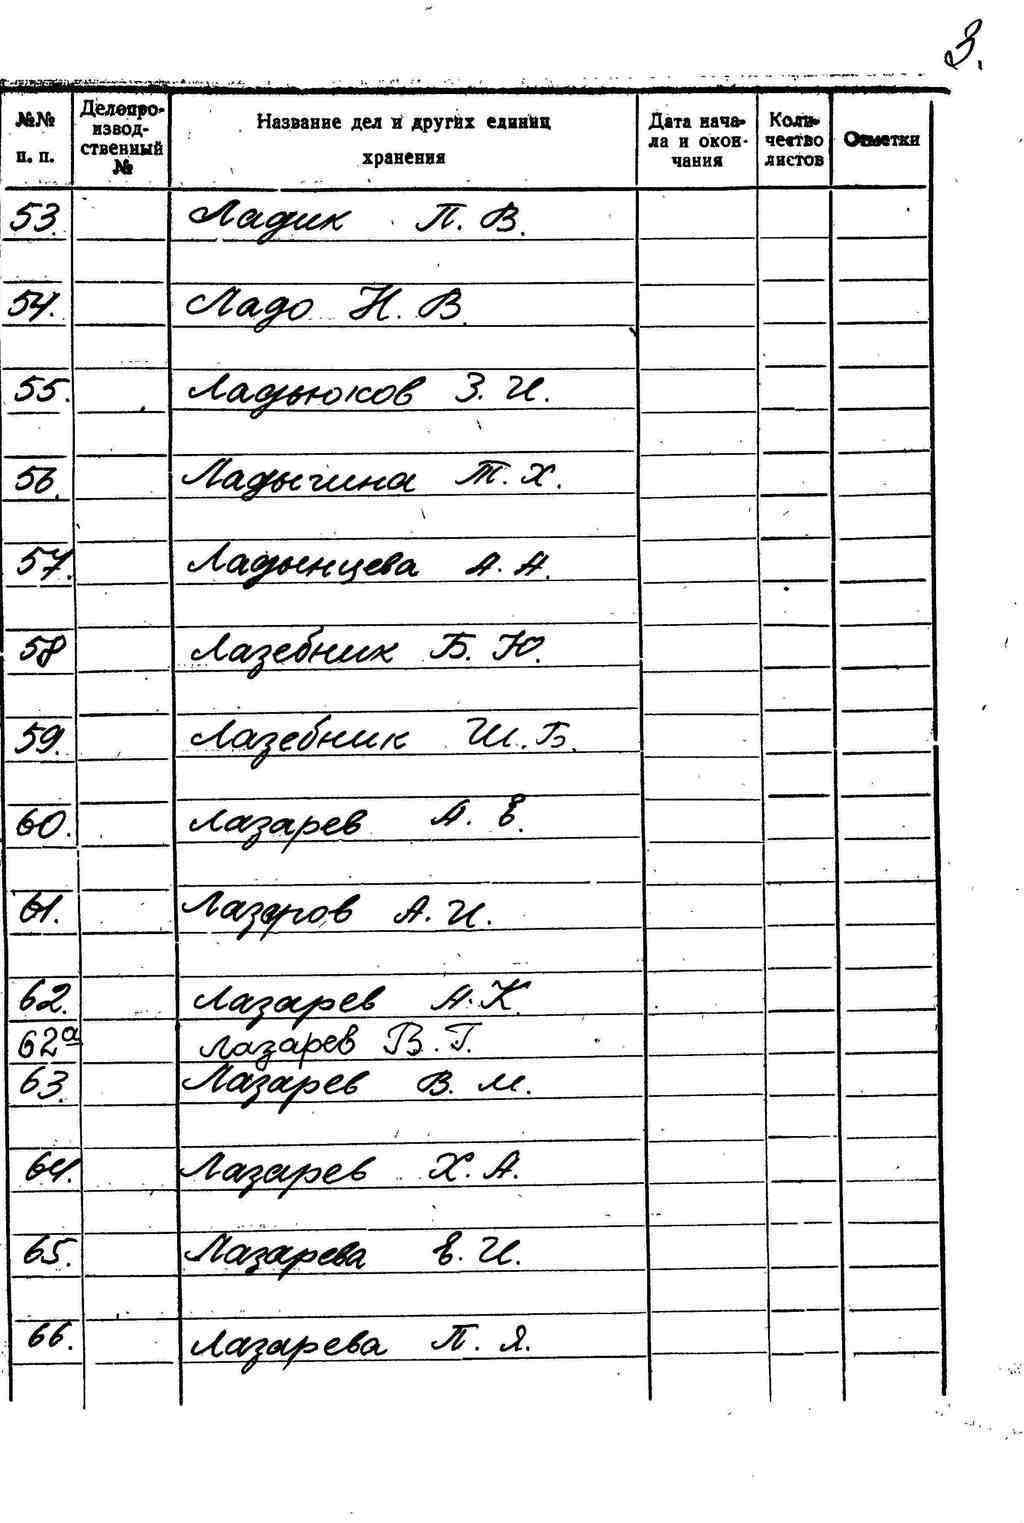 3.
№№ п. п. Делопро-извод-ственный № Название дел и других единиц хранения Дата нача-ла и окон-чания Коли-чество листов Отметки
53. Ладик П. В.
54. Ладо Н. В.
55. Ладьюков З. И.
56. Ладыгина Т. Х.
57. Ладынцева А. А.
58 Лазебник Б. Ю.
59. Лазебник Ш. Б.
60. Лазарев А. Е.
61. Лазаров А. И.
62. Лазарев А. К.
62а Лазарев В. Г.
63. Лазарев В. М.
64. Лазарев Х. А.
65. Лазарева Е. И.
66. Лазарева П. Я.